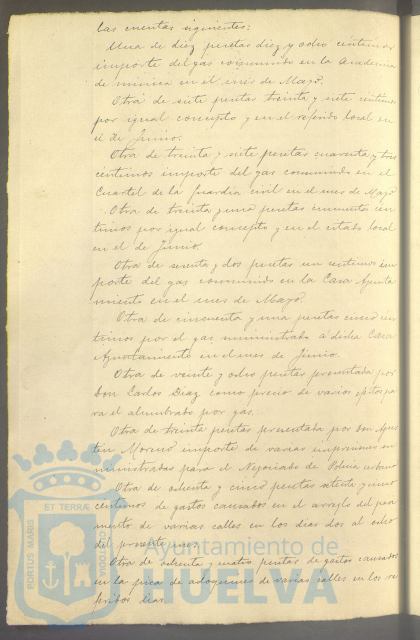 las cuentas siguientes:
Una de diez pesetas diez y ocho céntimos
importe del gas consumido en la Academia
de música en el mes de Mayo.
Otra de siete pesetas treinta y siete céntimos
por igual concepto y en el referido local en
el de Junio.
Otra de treinta y siete pesetas cuarenta y tres
céntimos importe del gas consumido en el
Cuartel de la Guardia civil en el mes de Mayo
Otra de treinta y una pesetas cincuenta cen
timos por igual concepto y en el citado local
en el de Junio.
Otra de setenta y dos pesetas un centimos im
porte del gas consumido en la Casa Ayunta
miento en el mes de Mayo.
Otra de cincuenta y una pesetas cinco cen
timos por el gas suministrado a dicha Casa
Ayuntamiento en el mes de Junio.
Otra de veinte y ocho pesetas presentada por
Don Carlos Diaz como precio de varios efectos pa
ra el alumbrado por gas.
Otra de treinta pesetas presentada por Don Agus
tin Moreno importe de varias impresiones su
ministradas para el Negociado de Policia urbana
Otra de ochenta y cinco pesetas setenta y cinco
centimos de gastos causados en el arreglo del pavi
mento de varias calles en los dias dos al ocho
del presente mes.
Otra de ochenta y cuatro pesetas de gastos causados
en la pica de adoquines de varias calles en los re
feridos dias.
PORTUS MARIS
ET TERRÆ
CUSTODIA
Ayuntamiento de
HUELVA